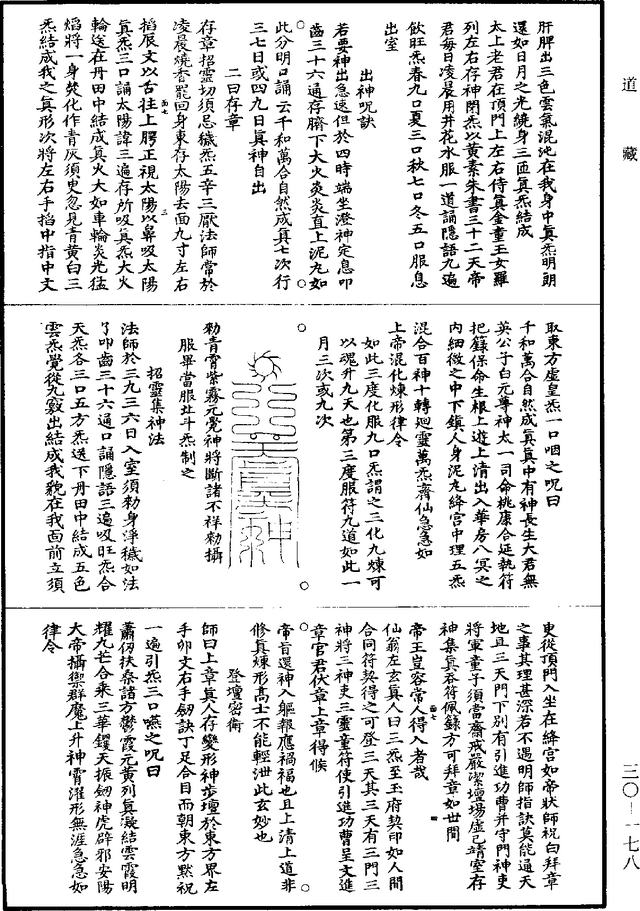 道藏
肝脾出三色雲氣混沌在我身中真炁明朗
還如日月之光繞身三匝真炁結成
太上老君在頂門上左右侍真金童玉女羅
列左右存神閉炁以黃素朱書三十二天帝
君每日凌晨用井花水服一道誦隱語九遍
飲旺炁春九口夏三口秋七口冬五口服息
出室
出神呪訣
若要神出急速但於四時端坐澄神定息叩
齒三十六通存臍下大火炎炎直上泥丸如
此分明口誦云千和萬合自然成真七次行
三七日或四九日真神自出
二曰存章
存章招靈切須忌穢炁五辛三厭法師常於
凌晨燒香罷回身東存太陽去面九寸左右
掐辰文以舌拄上腭正視太陽以鼻吸太陽
真炁三口誦太陽諱三遍存所吸真炁大火
輪送在丹田中結成真火大如車輪炎光猛
焰將一身焚化作青灰須臾忽見青黃白三
炁結成我之真形次將左右手掐中指中文
取東方虛皇炁一口咽之呪曰
千和萬合自然成真真中有神長生大君無
英公子白元尊神太一司命桃康合延執符
把籙保命生根上遊上清出入華房八冥之
內細微之中下鎮人身泥丸絳宮中理五炁
混合百神十轉迴靈萬炁齊仙急急如
上帝混化煉形律令
如此三度化服九口炁謂之三化九煉可
以魂升九天也第三度服符九道如此一
月三次或九次
勑青霄紫霧元覺神將斷諸不祥勑攝
服畢當服北斗炁制之
招靈集神法
法師於三九三六日入室須勑身淨穢如法
了叩齒三十六通口誦隱語三遍吸旺炁合
天炁各三口五方炁送下丹田中結成五色
雲炁覺從九竅出結成我貌在我面前立須
臾從頂門入坐在絳宮如帝狀師祝白拜章
之事其理甚深若不遇明師指訣莫能通天
地且三天門下別有引進功曹并守門神吏
將軍童子須當齋戒嚴潔壇場虛己靖室存
神集真吞符佩籙方可拜章如世間
帝王皇容常人得入者哉
仙翁左玄真人曰三炁至玉府契印如人間
合同符契得之可登三天其三天有三門三
神將三神吏三靈童符使引進功曹呈文進
章官君伏章上章得候
帝旨還神入軀報應禍福也且上清上道非
修真煉形高士不能輕泄此玄妙也
登壇密衛
師曰上章真人存變形神步壇於東方界左
手卯文右手劒訣丁足合目而朝東方默祝
一遍引炁三口嚥之呪曰
蕭仞扶桑諸方鬱霞元黃列真凝結雲霞明
耀九芒合乘三華鑁天振劒神虎辟邪安陽
大帝攝禦群魔上升神霄濯形無涯急急如
律令
三〇-一七八